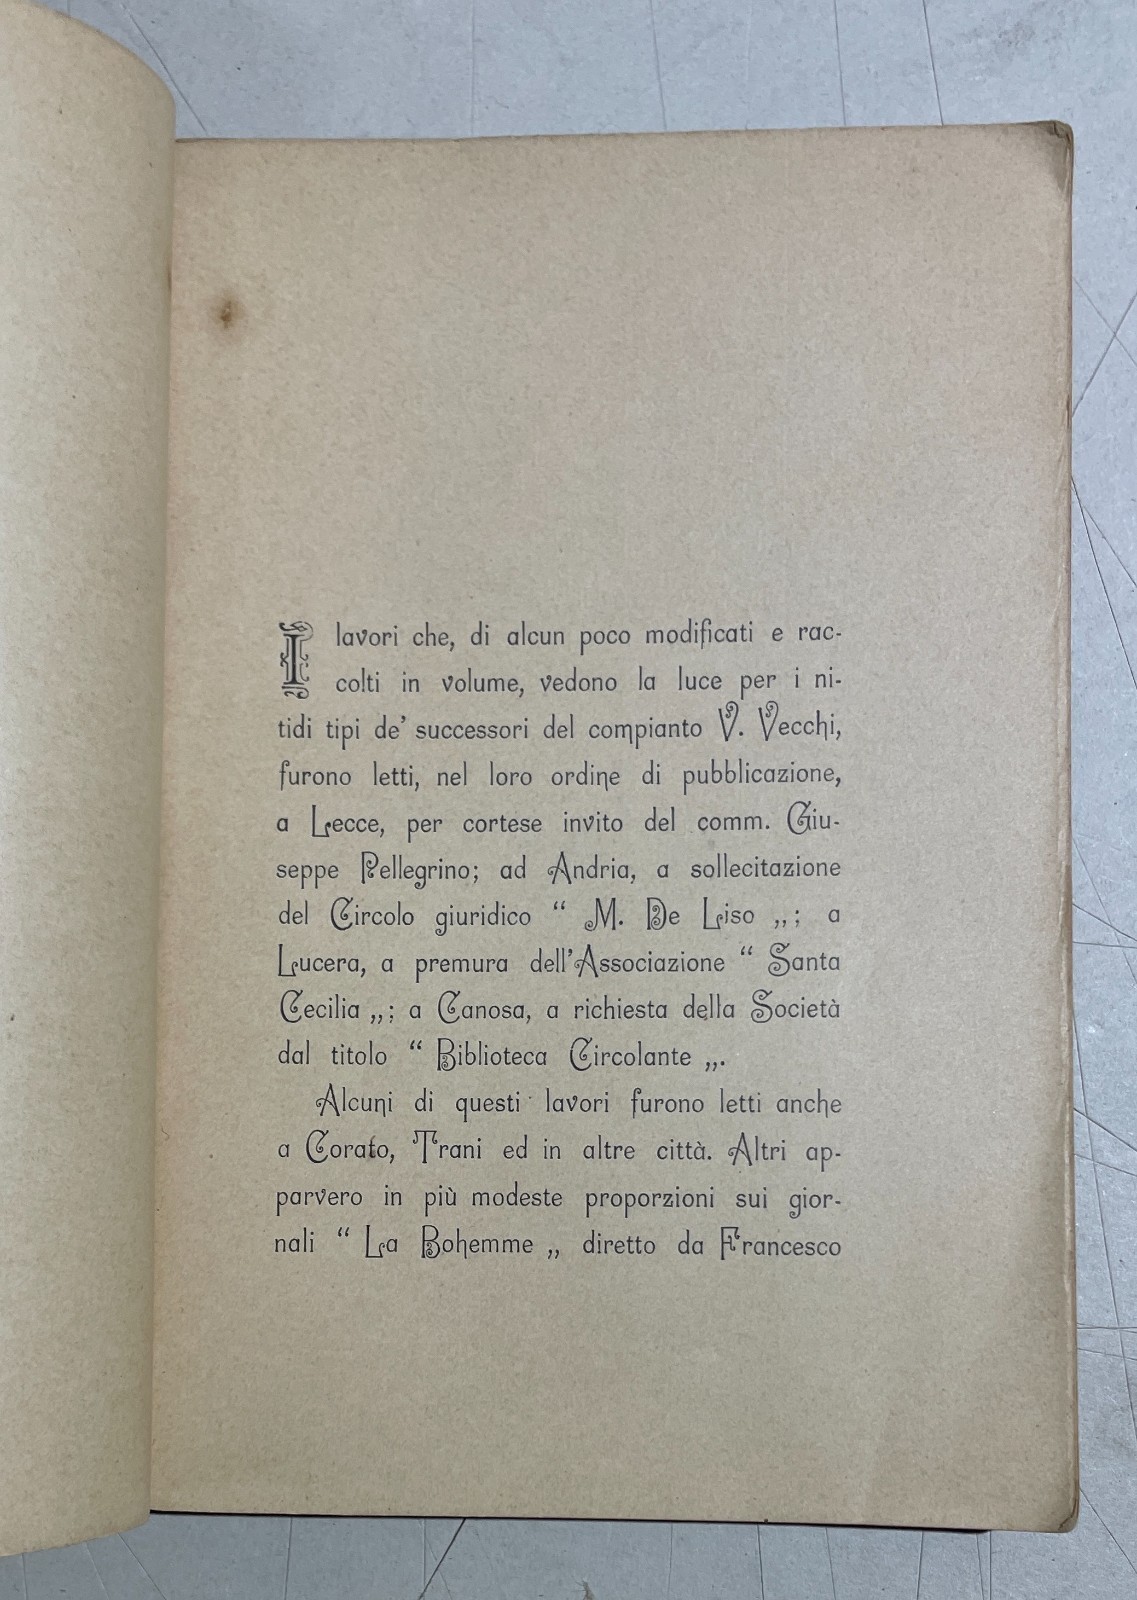 I lavori che, di alcun poco modificati e rac-
colti in volume, vedono la luce per i ni-
tidi tipi de' successori del compianto V. Vecchi,
furono letti, nel loro ordine di pubblicazione,
a Lecce, per cortese invito del comm. Giu-
seppe Pellegrino; ad Andria, a sollecitazione
del Circolo giuridico “ M. De Liso „; a
Lucera, a premura dell'Associazione “ Santa
Cecilia „; a Canosa, a richiesta della Società
dal titolo “ Biblioteca Circolante „.
Alcuni di questi lavori furono letti anche
a Corato, Trani ed in altre città. Altri ap-
parvero in più modeste proporzioni sui gior-
nali “ La Bohemme „ diretto da Francesco